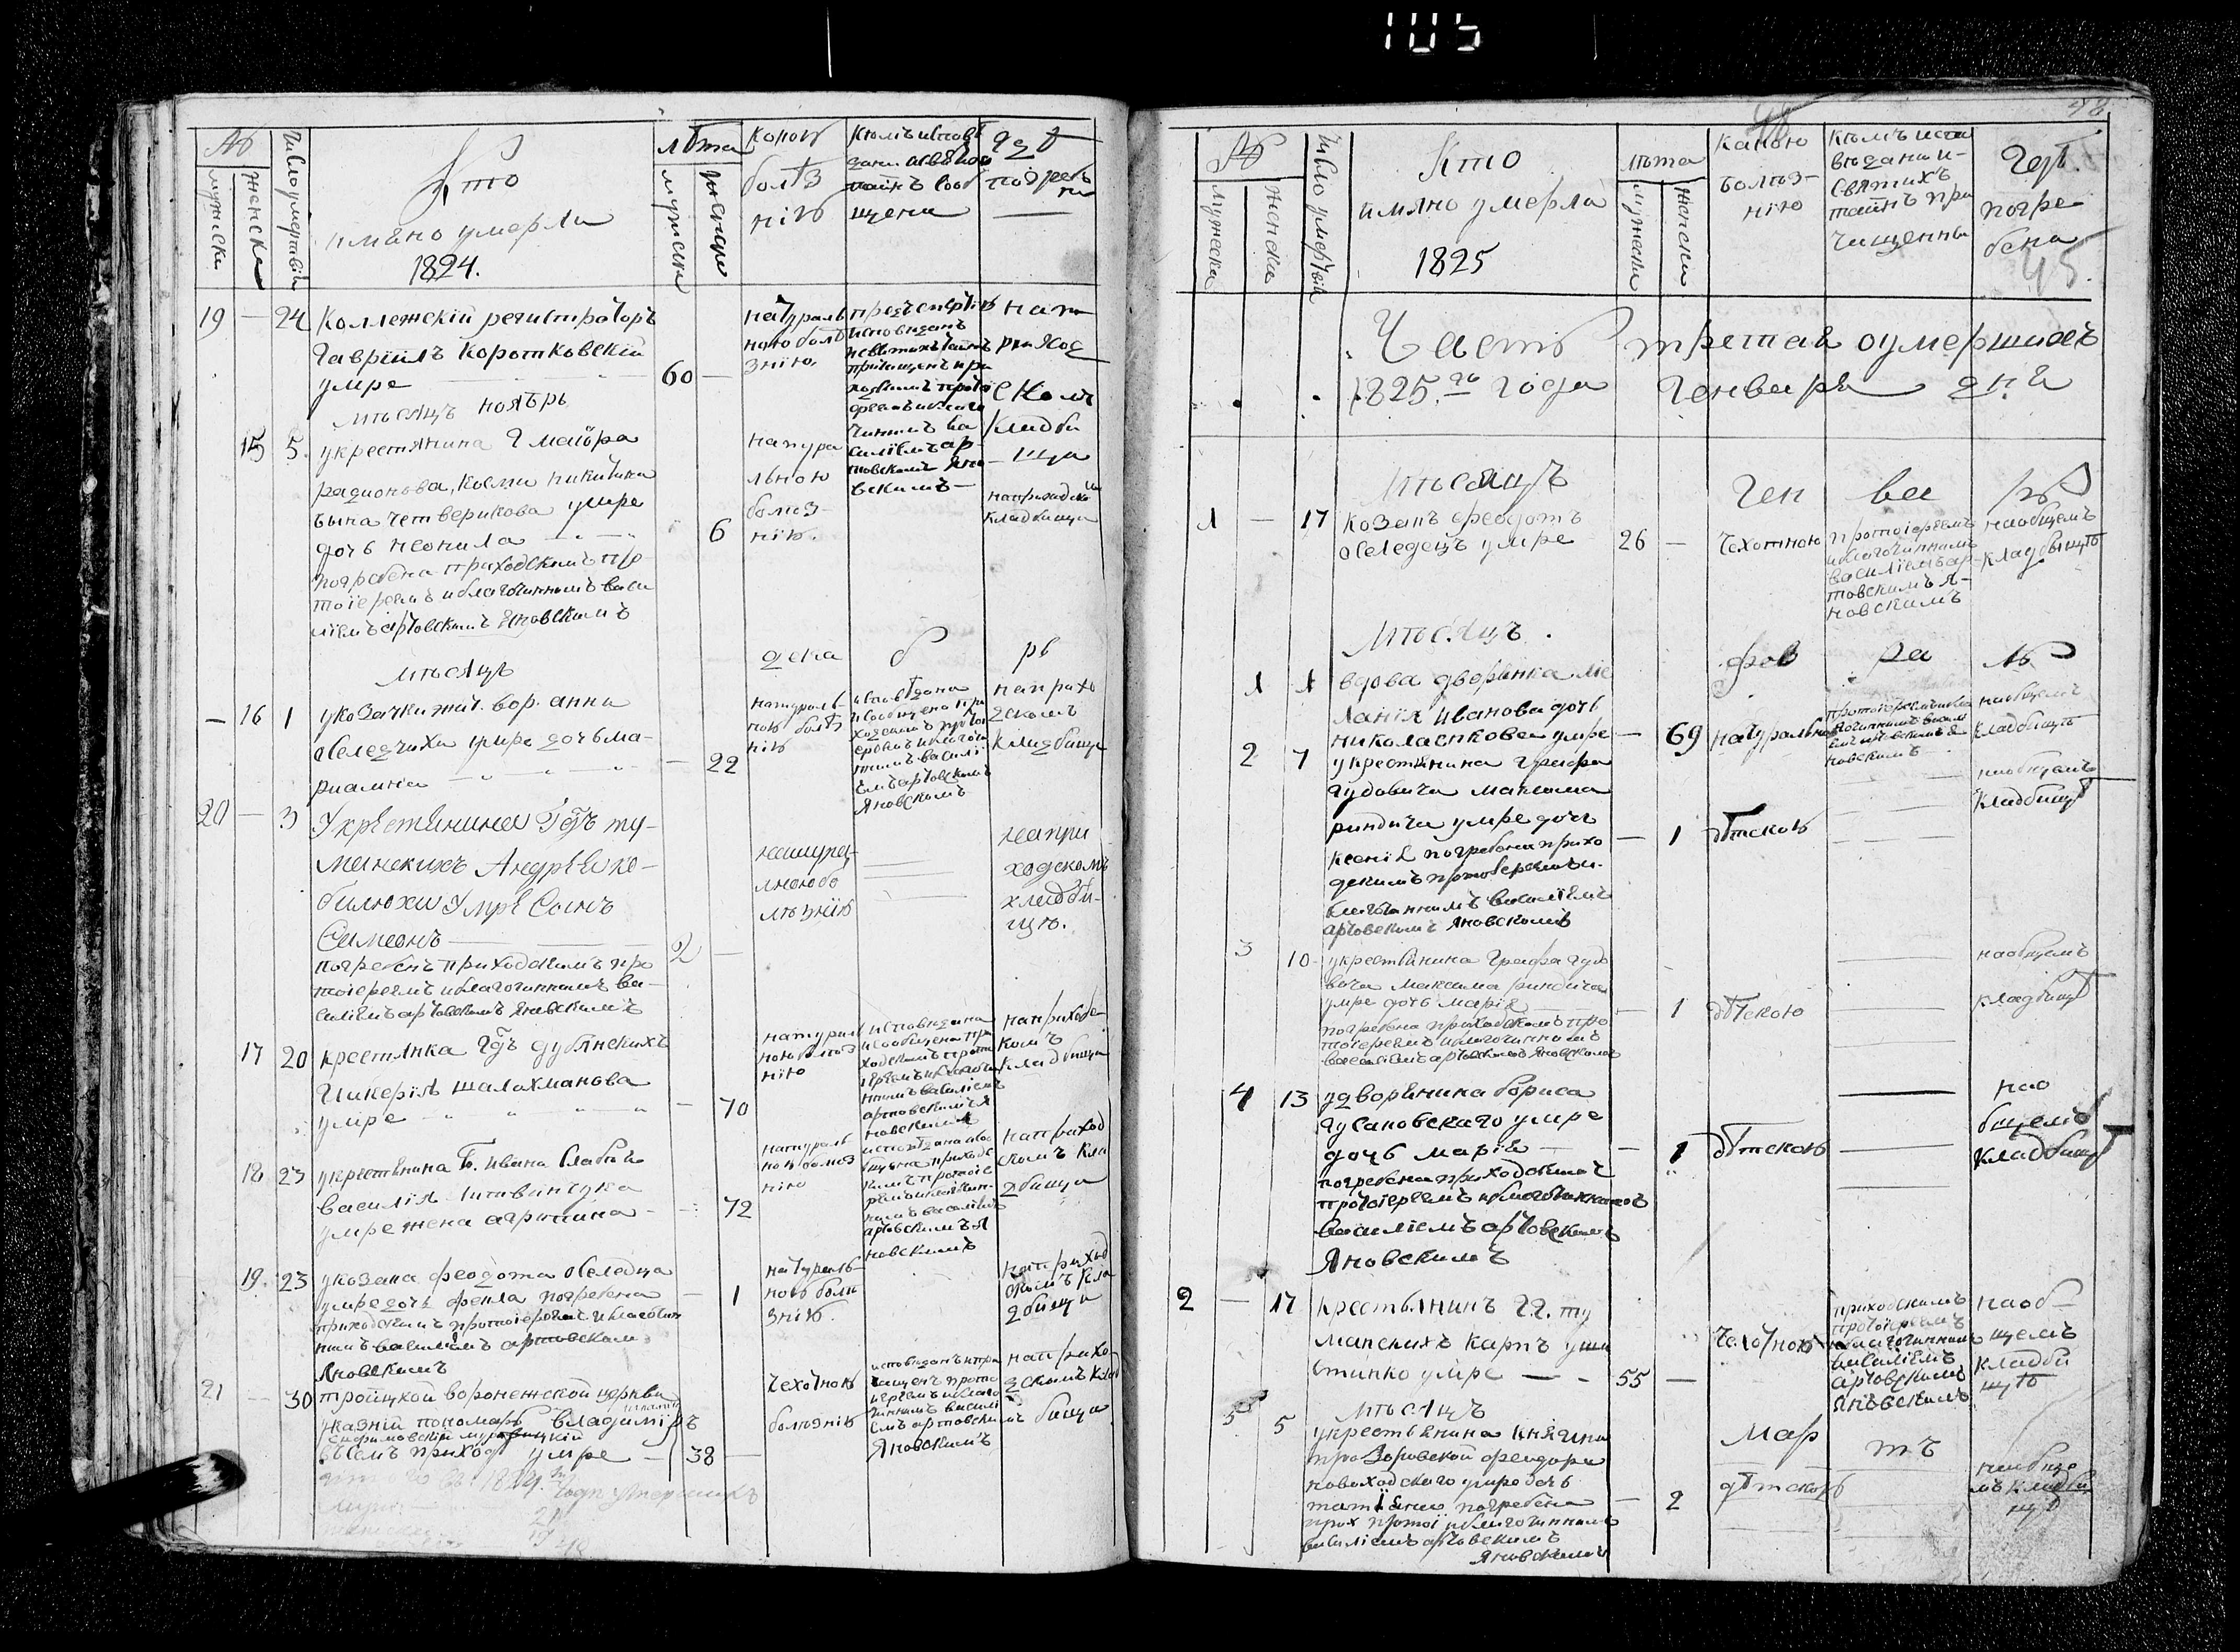 105
№
мужеска
женска
Число умертвій
Кто
имяно умерли
1824.
лѣта
мужска
женска
коею
болѣз
нію
кемъ исповѣ
даны и святой
тайнъ сооб
щены
гдѣ
погребе
ны
19 — 24 Коллежскій регистраторъ
Гавріилъ Коротковскій
умре 60 —
натураль
ною болѣ
знію.
предъ смертію
исповѣданъ
святыхъ таинъ
причищенъ при
ходскимъ прото
іереемъ и благо
чиннымъ ва
силіемъ ар
товскимъ Яно
вскимъ
на при
ходс
комъ
кладби
ща
мѣсяцъ ноябрь
15 5. у крестянина Г маіора
радионова, космы никитина
сына четверикова умре
дочь неонила 6
погребена приходскимъ про
тоіереемъ и благочиннымъ васи
ліемъ артовскимъ Яновскимъ
натура
льною
болѣз
нію.
на приходско
кладбищи
мѣсяцъ
дека б рь
— 16 1 у козачки жит. вор. анны
оселедчихи умре дочь ма-
риамна — 22
натураль-
ною болѣз
нію
исповѣдана
и сообщена при
ходскимъ прото
іереемъ и благочи
ннымъ василі
емъ артовскимъ
Яновскимъ
на прихо
дскомъ
кладбищи
20 — 3 У крестянина Гдъ ту-
манскихъ Андрѣя ко-
билюхи Умре Сынъ
Симеонъ 2 —
погребенъ приходскимъ про
тоіереемъ и благочиннымъ ва-
силіемъ артовскимъ Яновскимъ
натура-
лною бо
лѣзнію
на при
ходскомъ
кладби-
щю.
17 20 крестянка Гдъ дублянскихъ
Гликерія шалахманова
умре — 70
натурал
ною болѣз
нію
исповѣдана
и сообщена при
ходскимъ прото
іереемъ и благочи
ннымъ василіемъ
артовскимъ Я
новскимъ
на приходс
комъ
кладбищи
18 23 у крестянина Г. ивана Слабія
василія литвинчука
умре жена агрипина — 72
натураль
ною болѣз
нію
исповѣдана и соо
бщена приходс
кимъ протоіе
реемъ и благочин
нымъ василіемъ
артовскимъ Я
новскимъ
на приход
скомъ кла
дбищи
19. 23 у козака феодота оселедца
умре дочь фекла погребена — 1
приходскимъ протоіереемъ и благочин
нымъ василіемъ артовскимъ
Яновскимъ
натураль
ною болѣ
знію.
на приход
скомъ кла
дбищи
21 — 30 тройцкой воронежской церкви
пономарь владиміръ
въ семъ приходѣ умре — 38 —
чехотною
болѣзнію
исповѣданъ и при
чащенъ прото
іереемъ и благо
чиннымъ василі
емъ артовскимъ
Яновскимъ
на прихо
дскомъ клад
бищи
1824. года умершихъ
48
45.
№
мужеска
женска
Число умертвій
Кто
имяно умерла
1825
лѣта
мужеска
женска
какою
болѣз-
нію
кѣмъ испо
вѣданы и
святыхъ
таинъ при
чищенны
гдѣ
погре
бена
Часть третая о умершихъ
1825.го года Генваря дня
Мѣсяцъ Ген ва рь
1 — 17 козакъ феодотъ
оселедецъ умре 26 — чехотною
протоіереемъ
и благочиннымъ
василіемъ ар
товскимъ я-
новскимъ
на общемъ
кладбищѣ
Мѣсяцъ. фев ра ль
1 1 вдова дворянка ме
ланія иванова дочь
николаенкова умре — 69 натуральною
протоіереемъ и бла
гочиннымъ васил
емъ артовскимъ Я
новскимъ
на общемъ
кладбищѣ
2 7 у крестянина графа
гудовича максима
риндича умре дочь — 1 дѣтскою
ксенія погребена прихо
дскимъ протоіереемъ и
благочиннымъ василіемъ
артовскимъ Яновскимъ
на общемъ
кладбищѣ
3 10 у крестянина графа гудо
вича максима риндича
умре дочь марія — 1 дѣтскою
погребена приходскимъ про
тоіереемъ и благочиннымъ
василіемъ артовскимъ Яновскимъ
на общемъ
кладбищѣ
4 13 у дворянина бориса
гусановскаго умре
дочь марія — 1 дѣтскою
погребена приходскимъ
протоіереемъ и благочиннымъ
василіемъ артовскимъ
Яновскимъ
на о
бщемъ
кладбищѣ
2 — 17 крестьянинъ гг. ту
манскихъ карпъ уши
венко умре 55 —
чехотною
приходскимъ
протоіереемъ
и благочиннымъ
василіемъ
артовскимъ
Яновскимъ
на об-
щемъ
кладби
щѣ
мѣсяцъ Мар тъ
5 5 у крестьянина княгини
прозоровской феодора
новоходского умре дочь
татіяна погребена — 2 дѣтскою
прих протоі и благочиннымъ
василіемъ артовскимъ
Яновскимъ
на обще
мъ кладби
щѣ